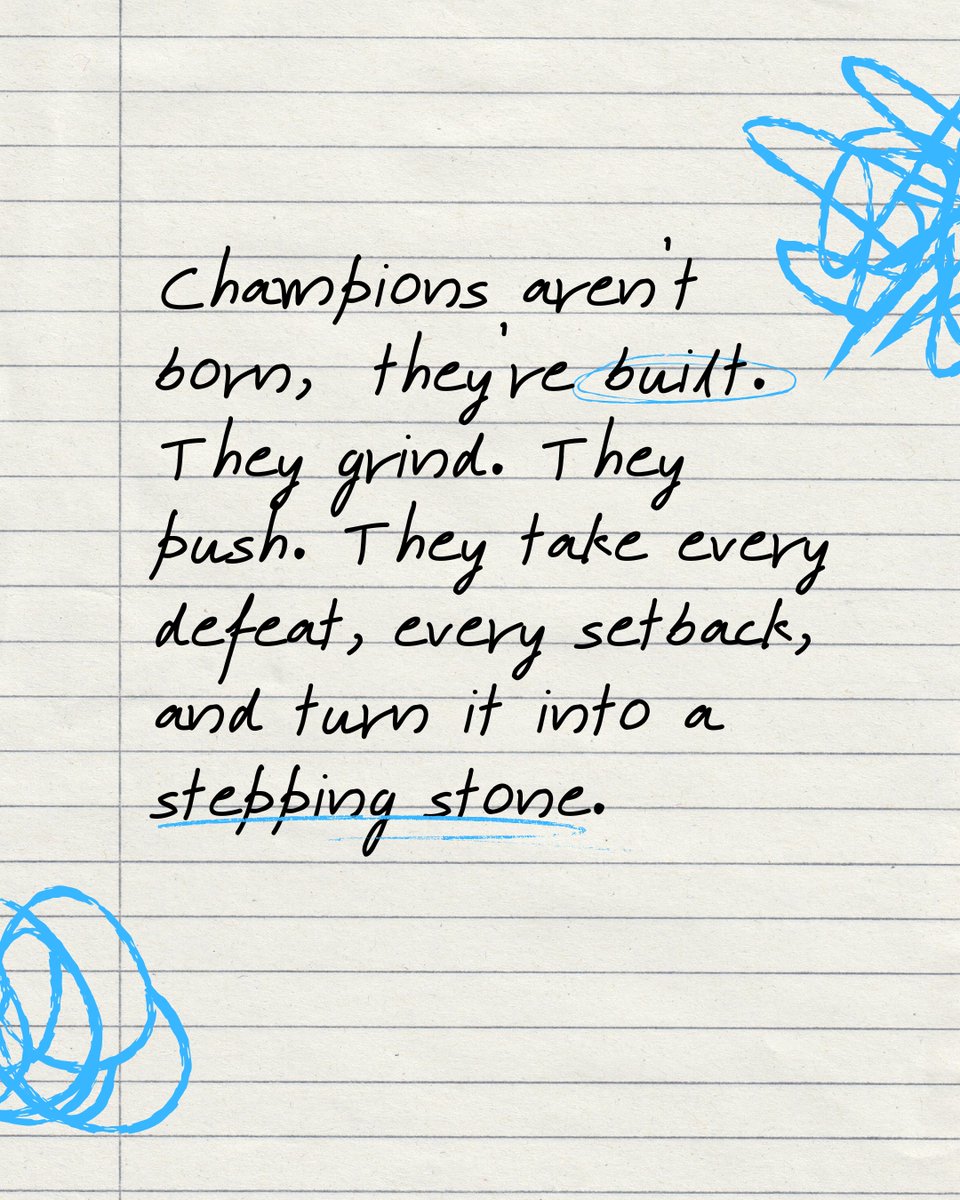 Champions aren't
born, they're built.
They grind. They
push. They take every
defeat, every setback,
and turn it into a
stepping stone.